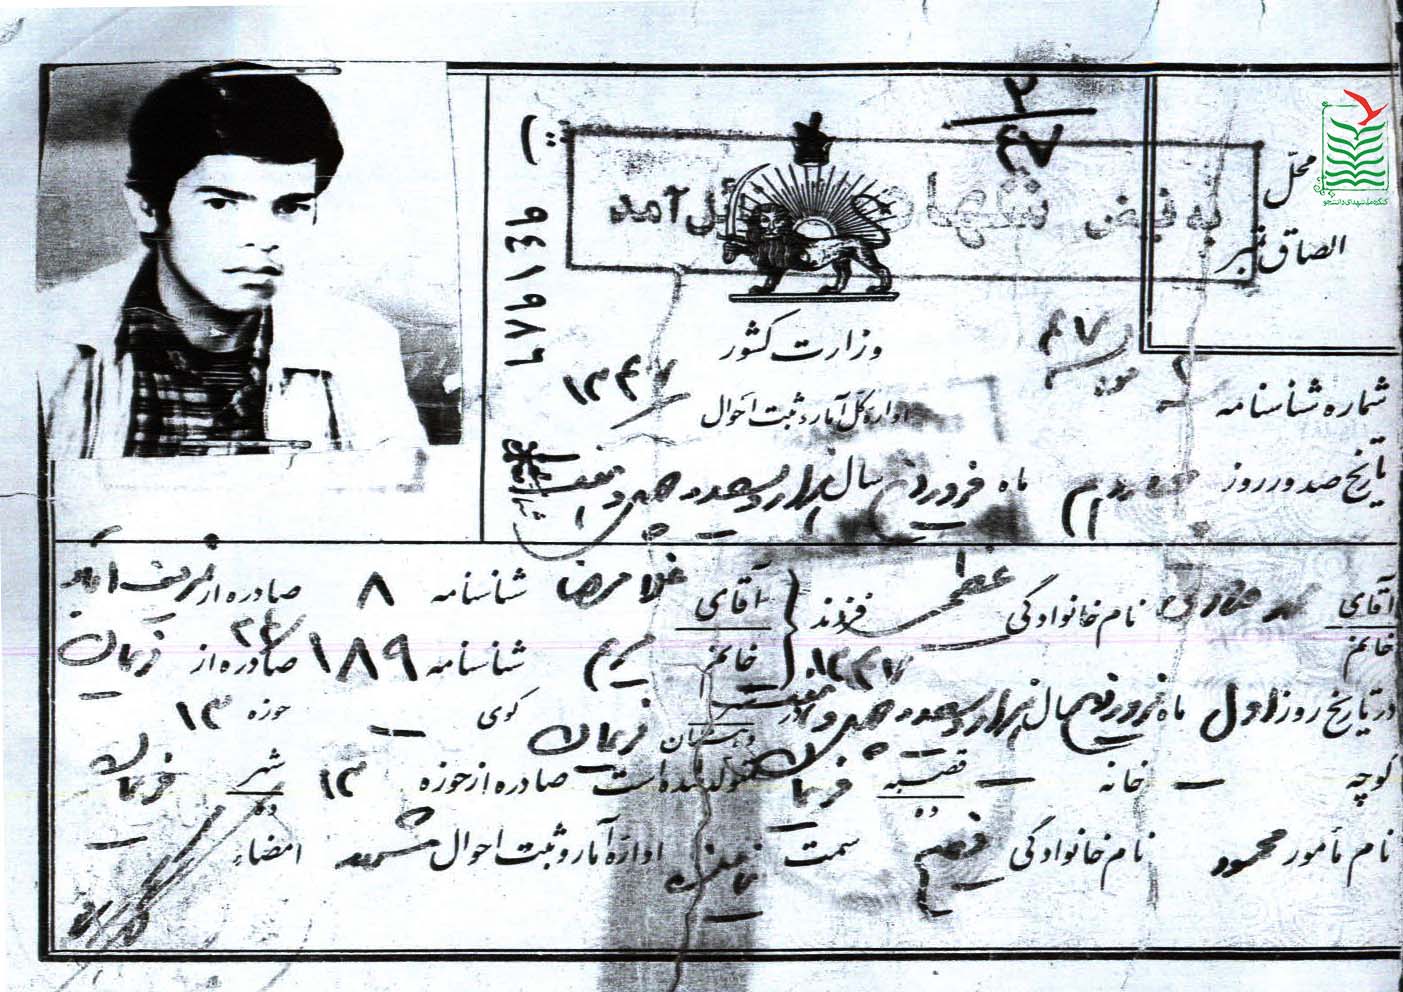 محلّ
الصاق تمبر
کنگره ملی شهدای دانشجو
۲
۴۷
به فیض شهادت نائل آمد
۶۸۹۱۴۶
وزارت کشور
اداره کل آمار و ثبت احوال
۱۳۴۷
شماره شناسنامه ۲
تاریخ صدور روز دوم ماه فروردین سال هزار و سیصد و چهل و هفت
آقای
خانم
نام خانوادگی عظیمی فرزند
آقای غلامرضا شناسنامه ۸ صادره از شریف آباد
خانم مریم شناسنامه ۱۸۹ صادره از فریمان
۱۳۴۷
در تاریخ روز اول ماه فروردین سال هزار و سیصد و چهل و هفت در
دهستان فریمان کوی – حوزه ۱۳
کوچه – خانه – قصبه ده فریمان متولد شده است صادره از حوزه ۱۳ شهر ده فریمان
نام مأمور محمود نام خانوادگی سمت نماینده اداره آمار و ثبت احوال مشهد امضاء